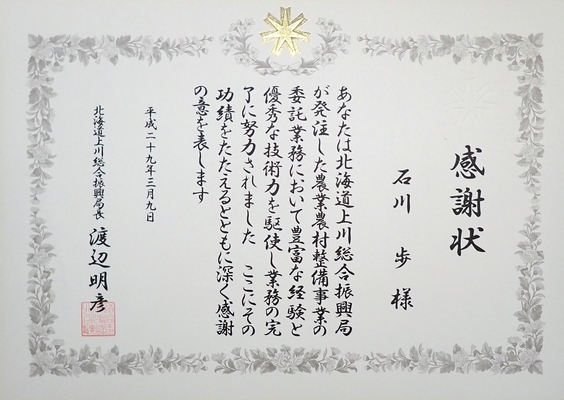 感謝状
石川 歩 様
あなたは北海道上川総合振興局
が発注した農業農村整備事業の
委託業務において豊富な経験と
優秀な技術力を駆使し業務の完
了に努力されました ここにその
功績をたたえるとともに深く感謝
の意を表します
平成二十九年三月九日
北海道上川総合振興局長 渡辺明彦